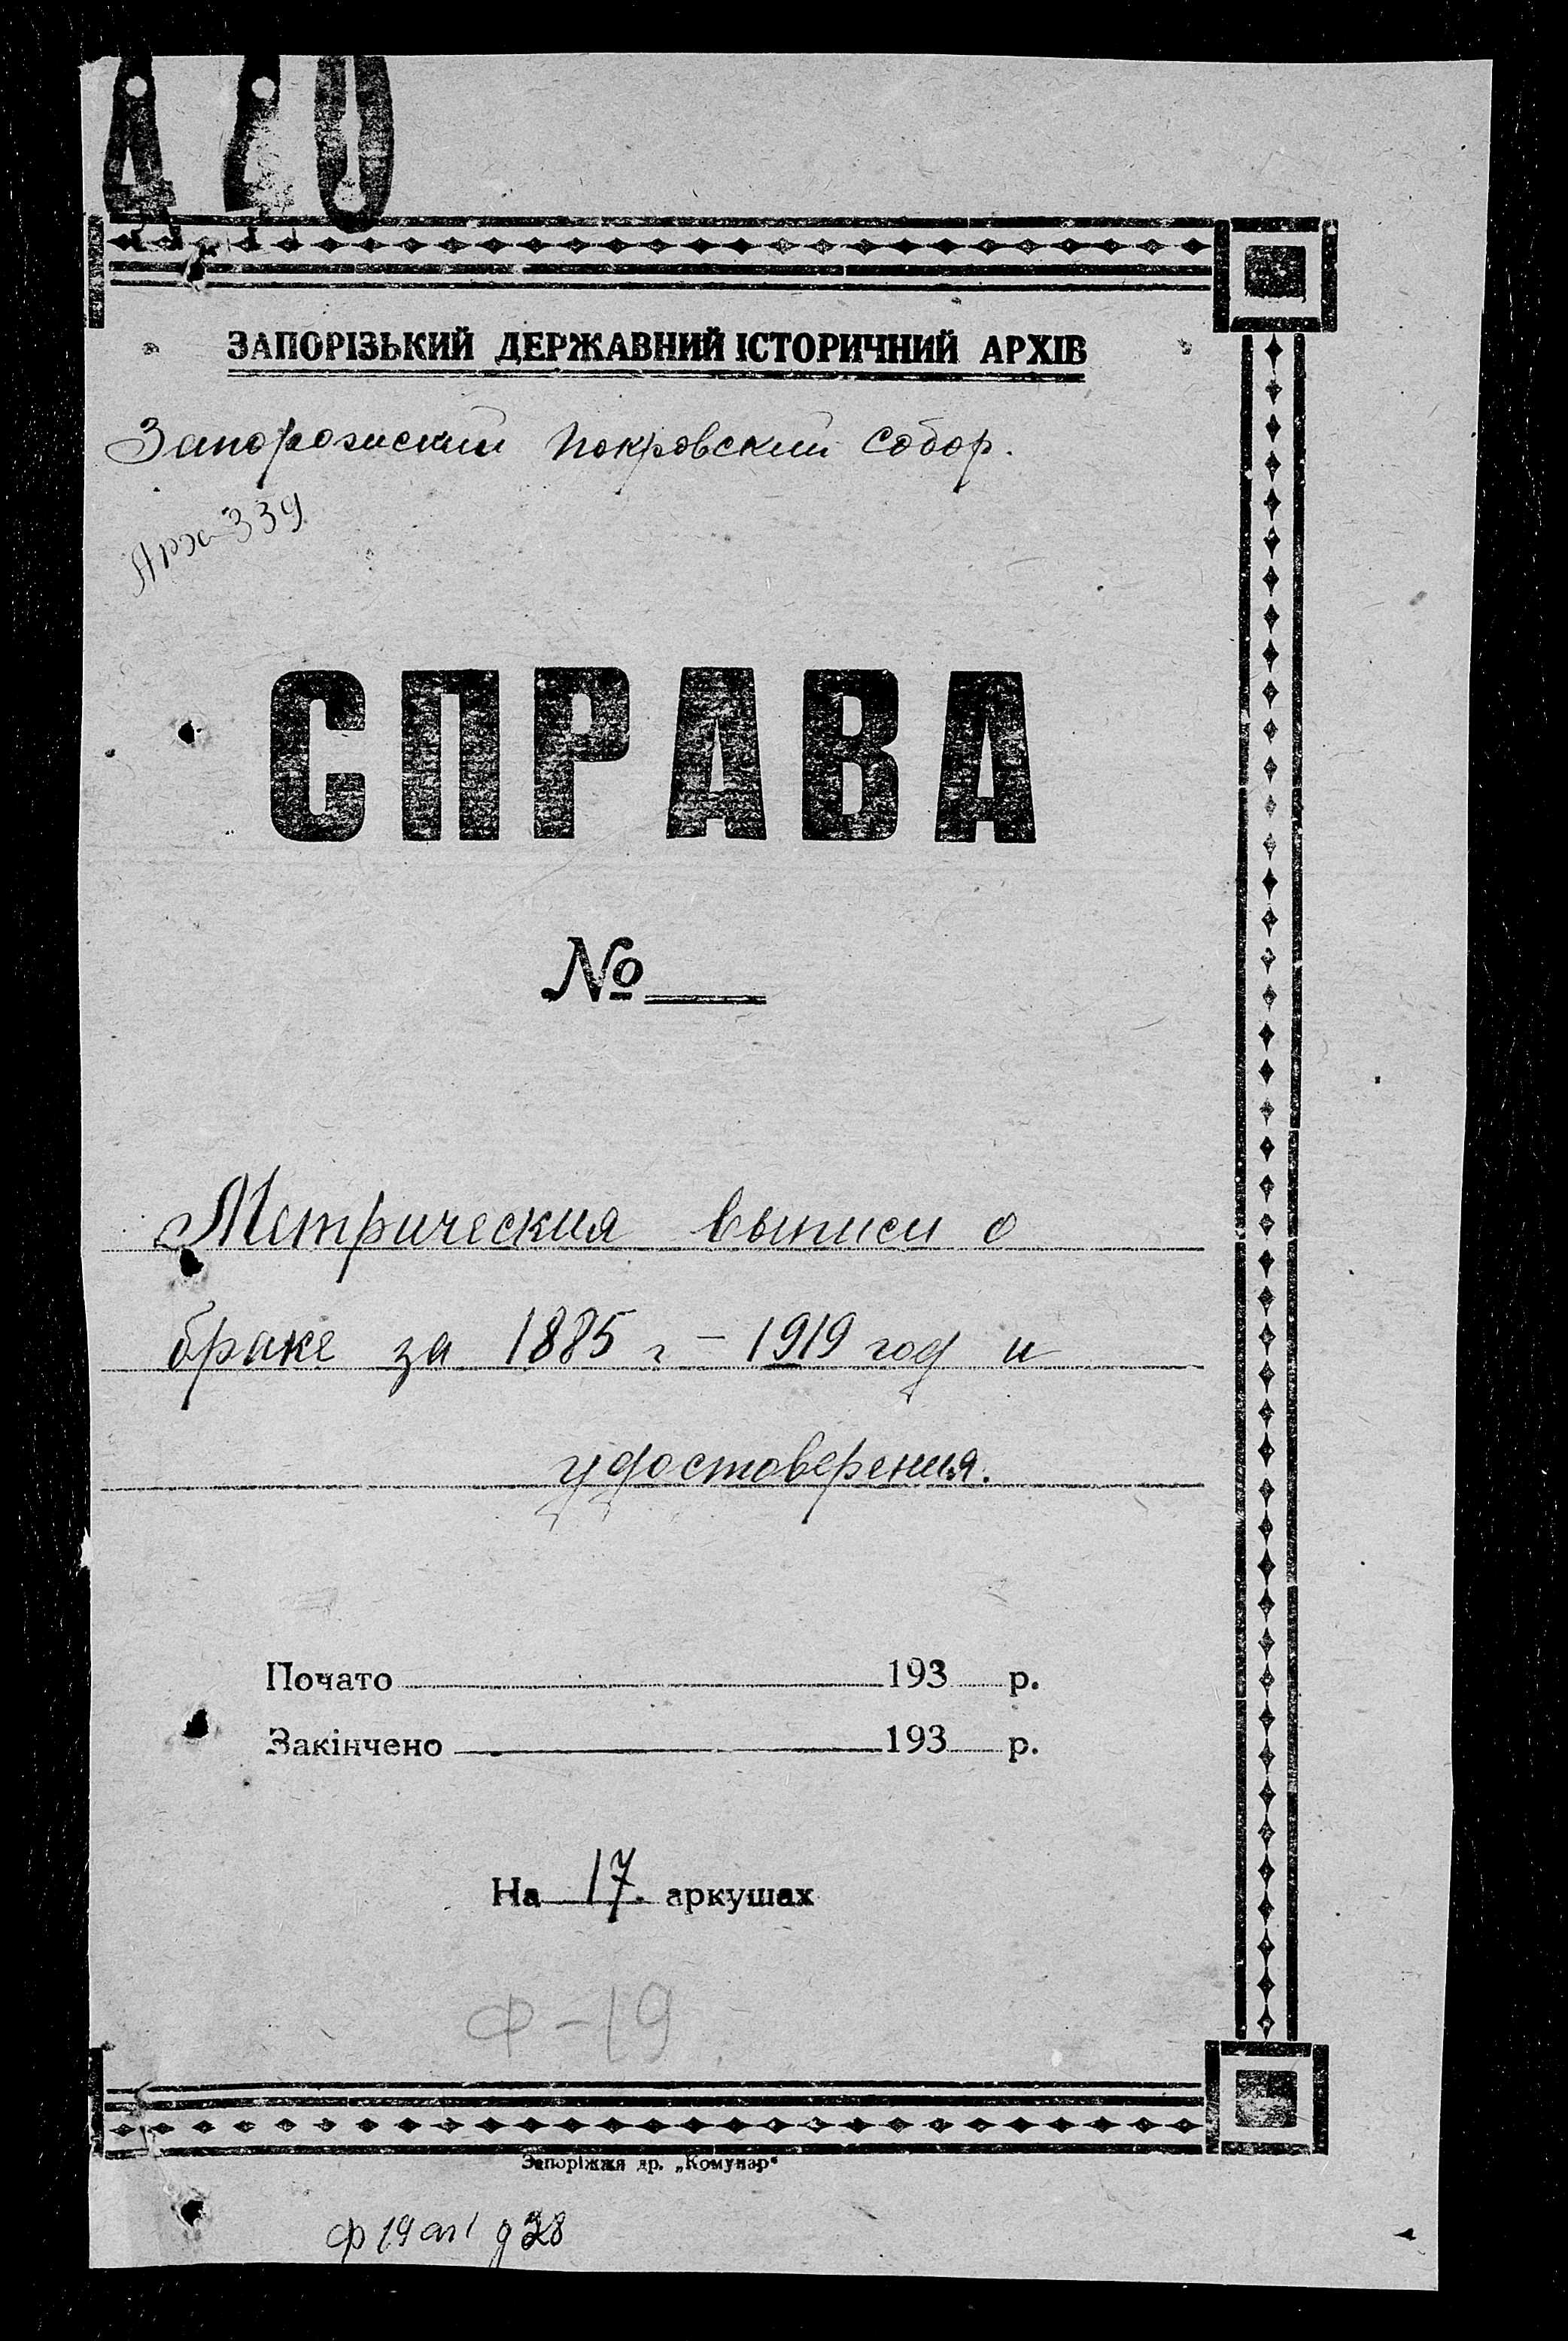 ЗАПОРІЗЬКИЙ ДЕРЖАВНИЙ ІСТОРИЧНИЙ АРХІВ
Запорожский Покровский Собор.
Арх 339
СПРАВА
№
Метрическия выписи о
браке за 1885 г - 1919 год и
удостоверения.
Почато 193 р.
Закінчено 193 р.
На 17 аркушах
Ф-19
Запоріжжя др. „Комунар"
ф 19 оп 1 д 28